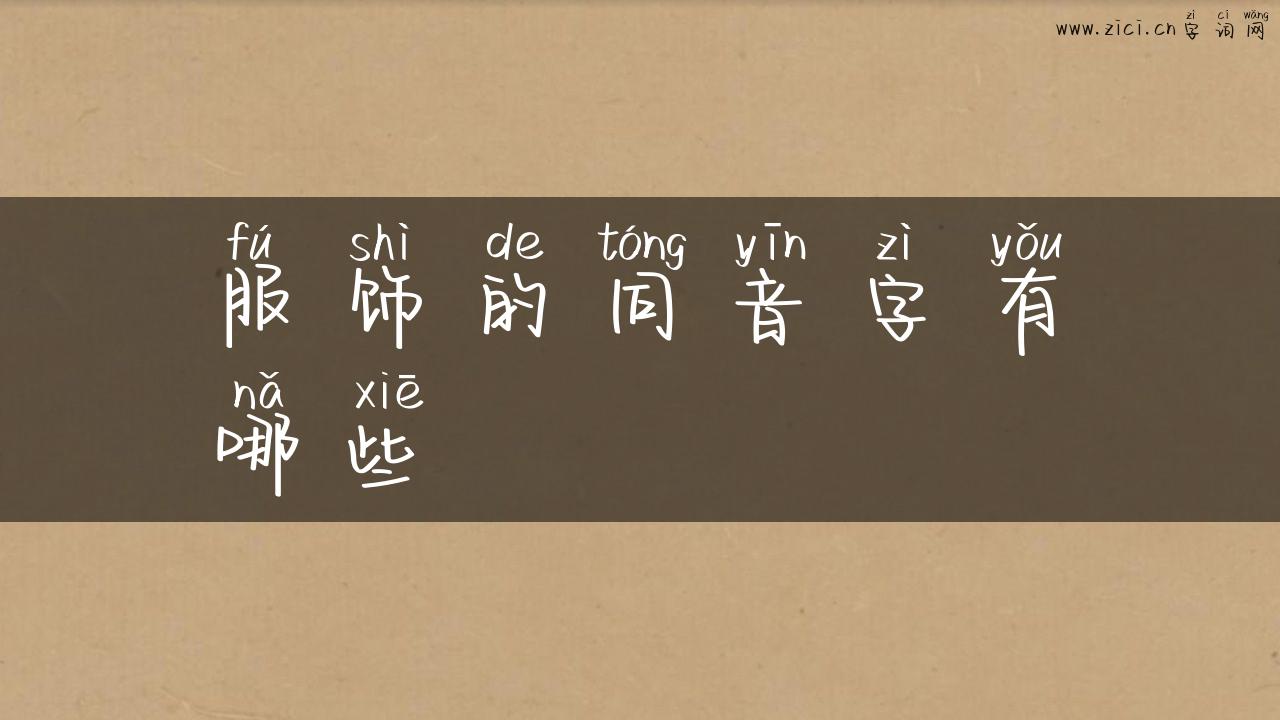 zì cí wǎng
www.zici.cn 字 词 网
fú shì de tóng yīn zì yǒu
服 饰 的 同 音 字 有
nǎ xiē
哪 些